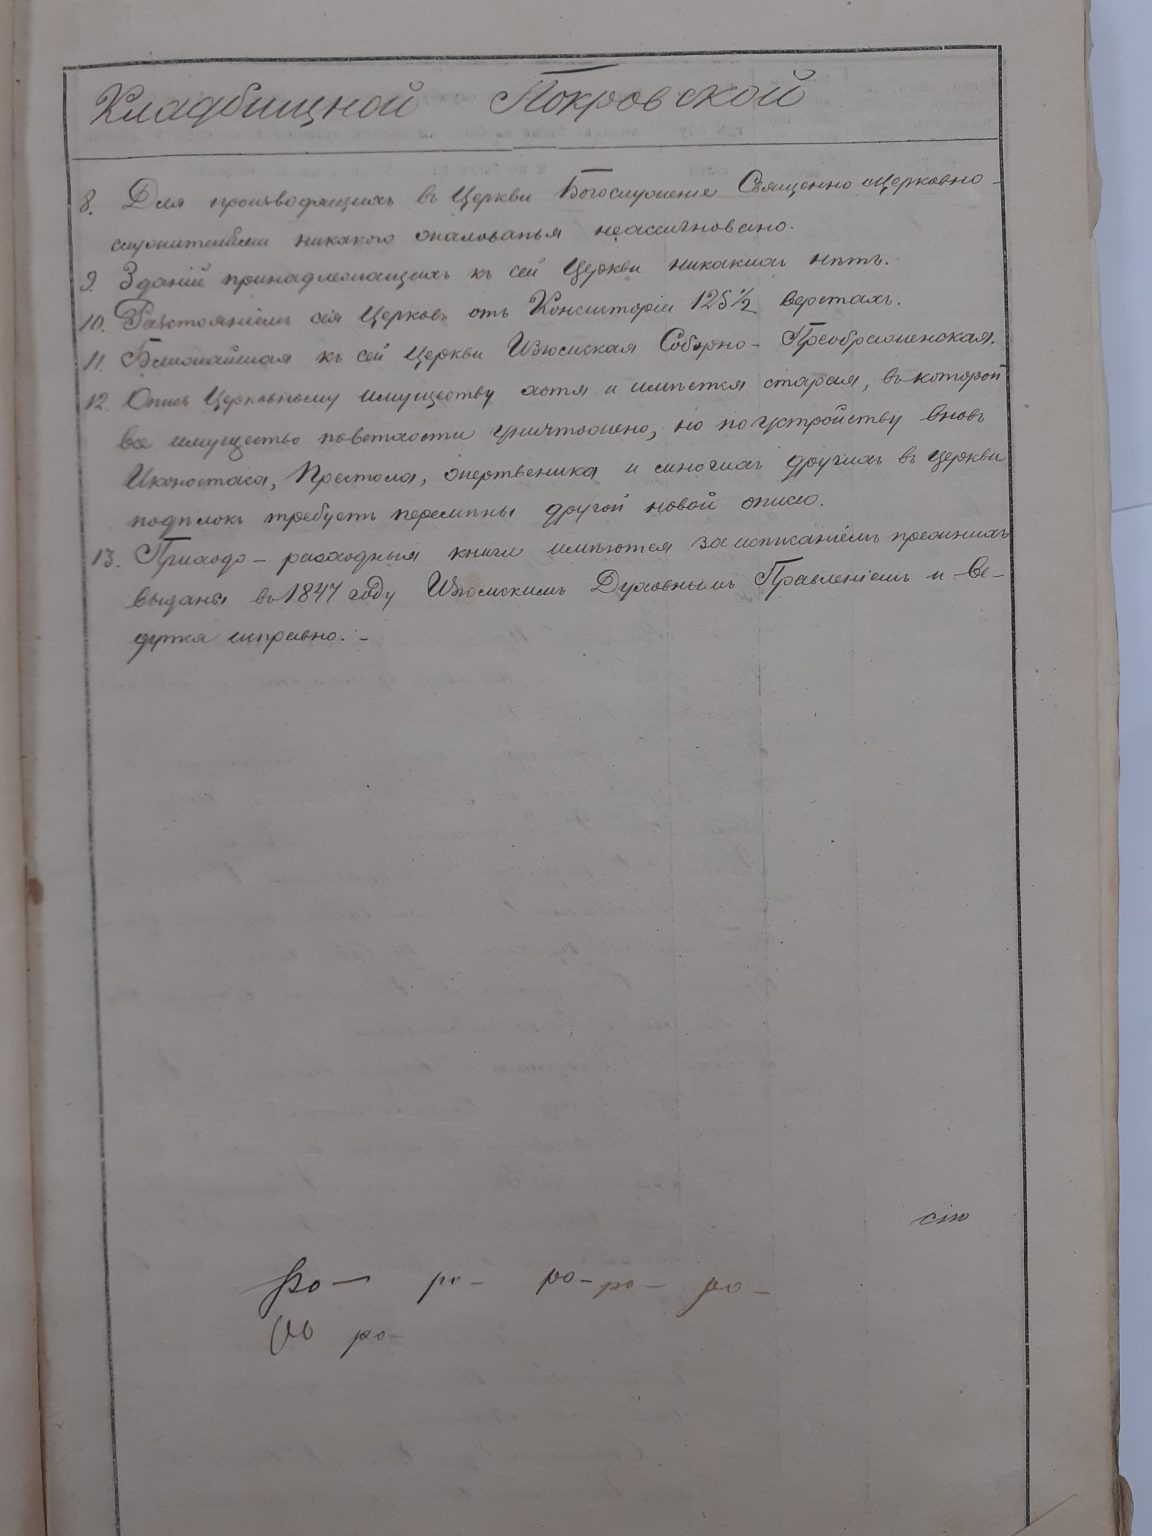 Кладбищной Покровской
8. Для производящихъ въ Церкви Богослуженіе Священно оцерковно-
служителями никакого жалованья неассигновано.
9. Зданій принадлежащихъ къ сей Церкви никакихъ нѣтъ.
10. Разстояніемъ сія Церковь отъ Консисторіи 125 1/2 верстахъ.
11. Ближайшая къ сей Церкви Изюмская Соборно- Преображенская.
12. Опись Церковному имуществу хотя и имѣется старая, въ которой
все имущество поветхости уничтожено, но по устройству вновь
Иконостаса, Престола, жертвеника и многихъ другихъ въ Церкви
подѣлокъ требуетъ перемѣны другой новой описью.
13. Приходо-расходныя книги имѣются за исписаніемъ прежнихъ
выданы въ 1847 году Изюмскимъ Духовнымъ Правленіемъ и ве-
дутся исправно. -
сію
ро- ро- ро- ро-
ро-